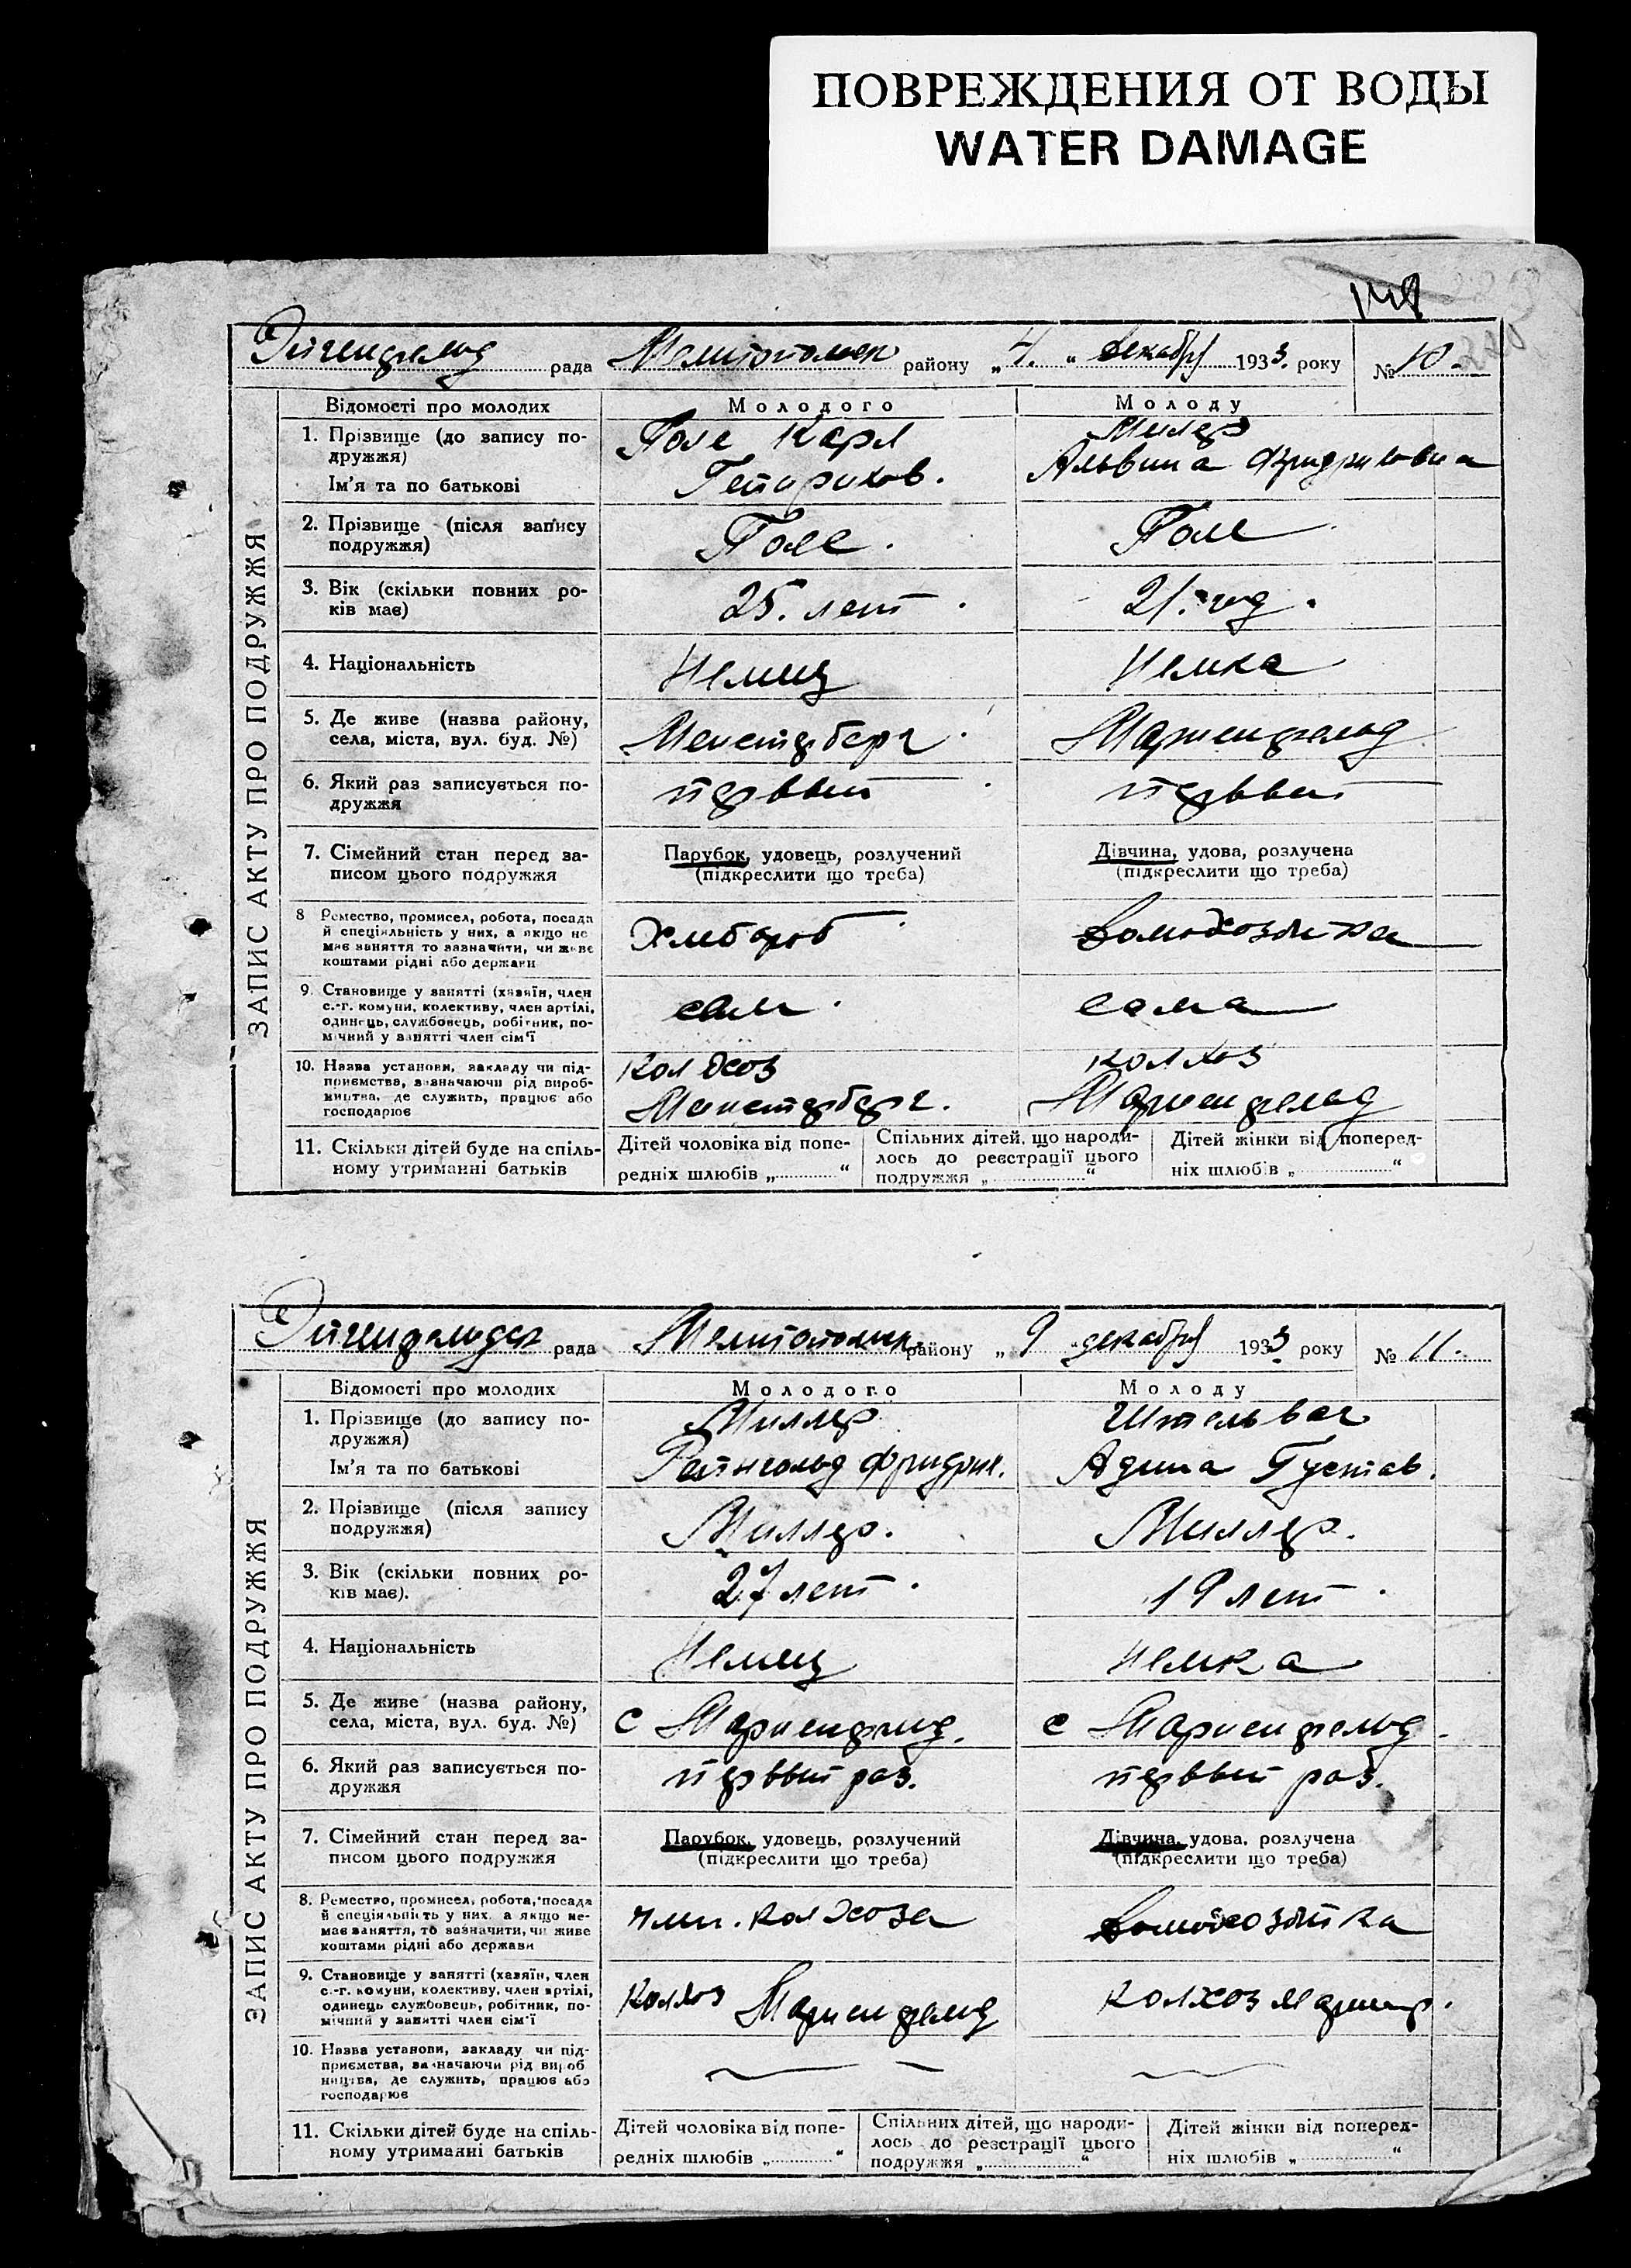 ПОВРЕЖДЕНИЯ ОТ ВОДЫ
WATER DAMAGE
148
Эйгенфельд рада Мелитопольск району „4.“ декабря 1933. року № 10.
ЗАПИС АКТУ ПРО ПОДРУЖЖЯ
Відомості про молодих Молодого Молоду
1. Прізвище (до запису по- Поле Карл Миллер
дружжя)
Ім'я та по батькові Гейнрихов. Альвина Фридриховна
2. Прізвище (після запису Поле. Поле
подружжя)
3. Вік (скільки повних ро- 25. лет. 21. год.
ків має)
4. Національність Немец Немка
5. Де живе (назва району, Менстерберг Мариенфельд
села, міста, вул. буд. №)
6. Який раз записується по- первый первый
дружжя
7. Сімейний стан перед за- Парубок, удовець, розлучений Дівчина, удова, розлучена
писом цього подружжя (підкреслити що треба) (підкреслити що треба)
8 Ремество, промисел, робота, посада Хлебороб Домохозяйка
й спеціяльність у них, а якщо не
має заняття то зазначити, чи живе
коштами рідні або держави
9. Становище у занятті (хазяїн, член сам. сама
с.-г. комуни, колективу, член артілі,
одинець, службовець, робітник, по-
мічний у занятті член сім'ї
10. Назва установи, закладу чи під- Колхоз колхоз
приємства, зазначаючи рід вироб- Менстерберг. Мариенфельд
ництва, де служить, працює або
господарює
11. Скільки дітей буде на спіль- Дітей чоловіка від попе- Спільних дітей, що народи- Дітей жінки від поперед-
ному утриманні батьків редніх шлюбів „ “ лось до реєстрації цього ніх шлюбів „ “
подружжя „ “
Эйгенфельдск рада Мелитопольск району „9 декабря 1933 року № 11.
ЗАПИС АКТУ ПРО ПОДРУЖЖЯ
Відомості про молодих Молодого Молоду
1. Прізвище (до запису по- Миллер Штельваг
дружжя)
Ім'я та по батькові Рейнгольд Фридрих. Адина Густав.
2. Прізвище (після запису Миллер. Миллер.
подружжя)
3. Вік (скільки повних ро- 27 лет. 19 лет.
ків має).
4. Національність Немец немка
5. Де живе (назва району, с Мариенфельд. с Мариенфельд.
села, міста, вул. буд. №)
6. Який раз записується по- первый раз. первый раз.
дружжя
7. Сімейний стан перед за- Парубок, удовець, розлучений Дівчина, удова, розлучена
писом цього подружжя (підкреслити що треба) (підкреслити що треба)
8. Ремество, промисел, робота, посада член. колхоза Домохозяйка
й спеціяльність у них, а якщо не-
має заняття, то зазначити, чи живе
коштами рідні або держави
9. Становище у занятті (хазяїн, член колхоз Мариенфельд колхоз Мариенф.
с.-г. комуни, колективу, член артілі,
одинець службовець, робітник, по-
мічний у занятті член сім'ї
10. Назва установи, закладу чи під-
приємства, зазначаючи рід вироб
ництва, де служить, працює або
господарює
11. Скільки дітей буде на спіль- Дітей чоловіка від попе- Спільних дітей, що народи- Дітей жінки від поперед-
ному утриманні батьків редніх шлюбів „ “ лось до реєстрації цього ніх шлюбів „ “
подружжя „ “